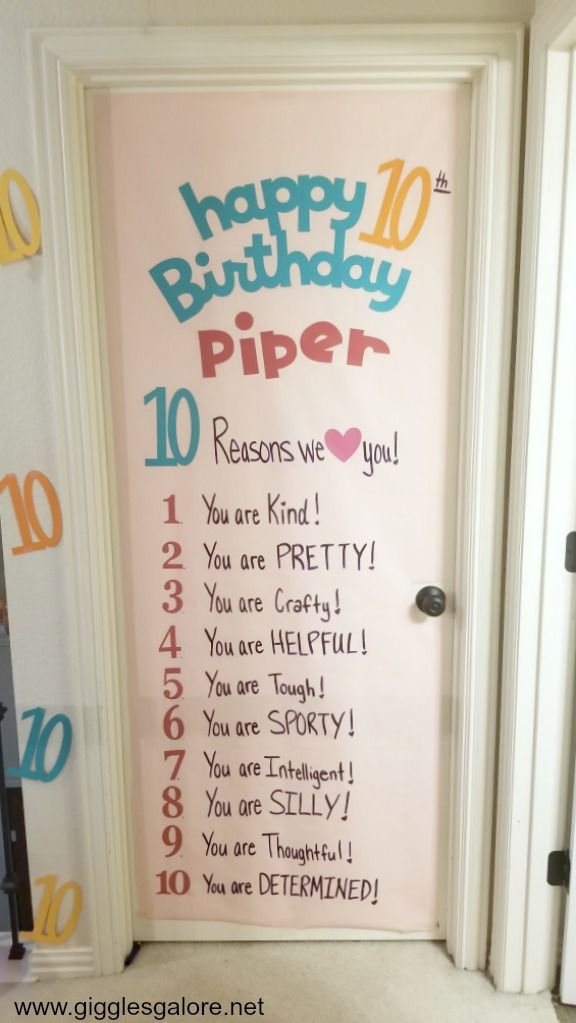 happy 10th
Birthday
Piper
10 Reasons we you!
1 You are Kind!
2 You are PRETTY!
3 You are Crafty!
4 You are HELPFUL!
5 You are Tough!
6 You are SPORTY!
7 You are Intelligent!
8 You are SILLY!
9 You are Thoughtful!
10 You are DETERMINED!
10
10
10
10
www.gigglesgalore.net